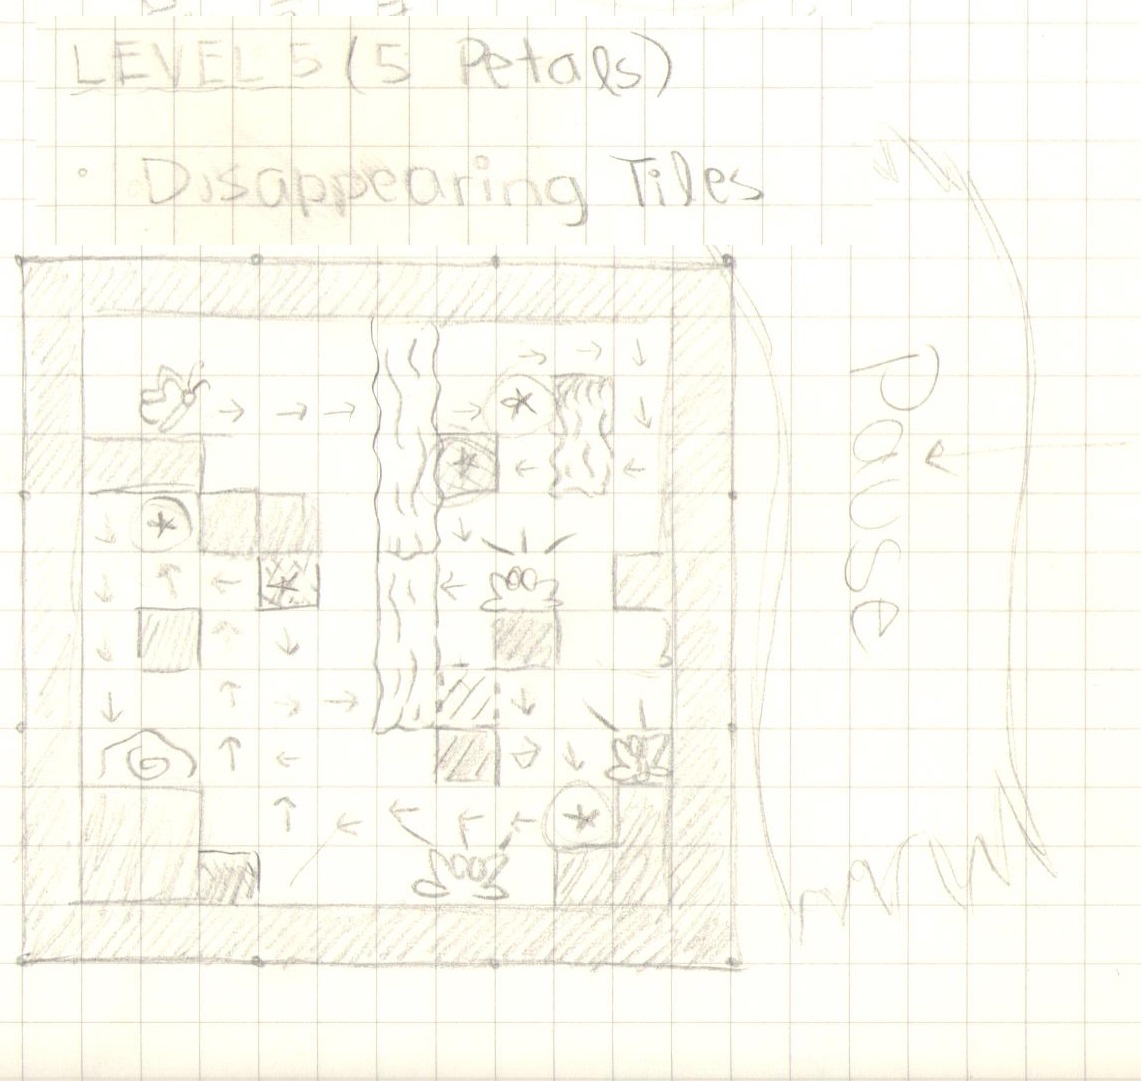 LEVEL 5 (5 Petals)
• Disappearing Tiles
Pause